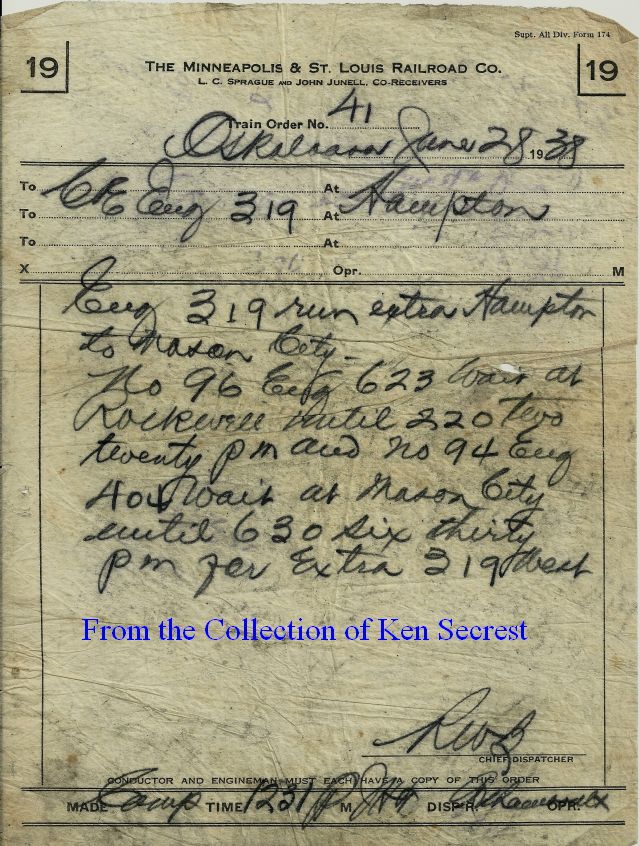 Supt. All Div. Form 174
19 19
THE MINNEAPOLIS & ST. LOUIS RAILROAD CO.
L. C. SPRAGUE AND JOHN JUNELL, CO-RECEIVERS
Train Order No. 41
Oskaloosa June 28 1938
To C&E Eng 319 At Hampton
To At
To At
X Opr. M
Eng 319 run extra Hampton
to Mason City
No 96 Eng 623 wait at
Rockwell until 220 two
twenty pm and No 94 Eng
404 wait at Mason City
until 630 six thirty
pm for Extra 319 West
From the Collection of Ken Secrest
RWB
CHIEF DISPATCHER
CONDUCTOR AND ENGINEMAN MUST EACH HAVE A COPY OF THIS ORDER
MADE Comp TIME 1231 P M. DISP'R. OPR.